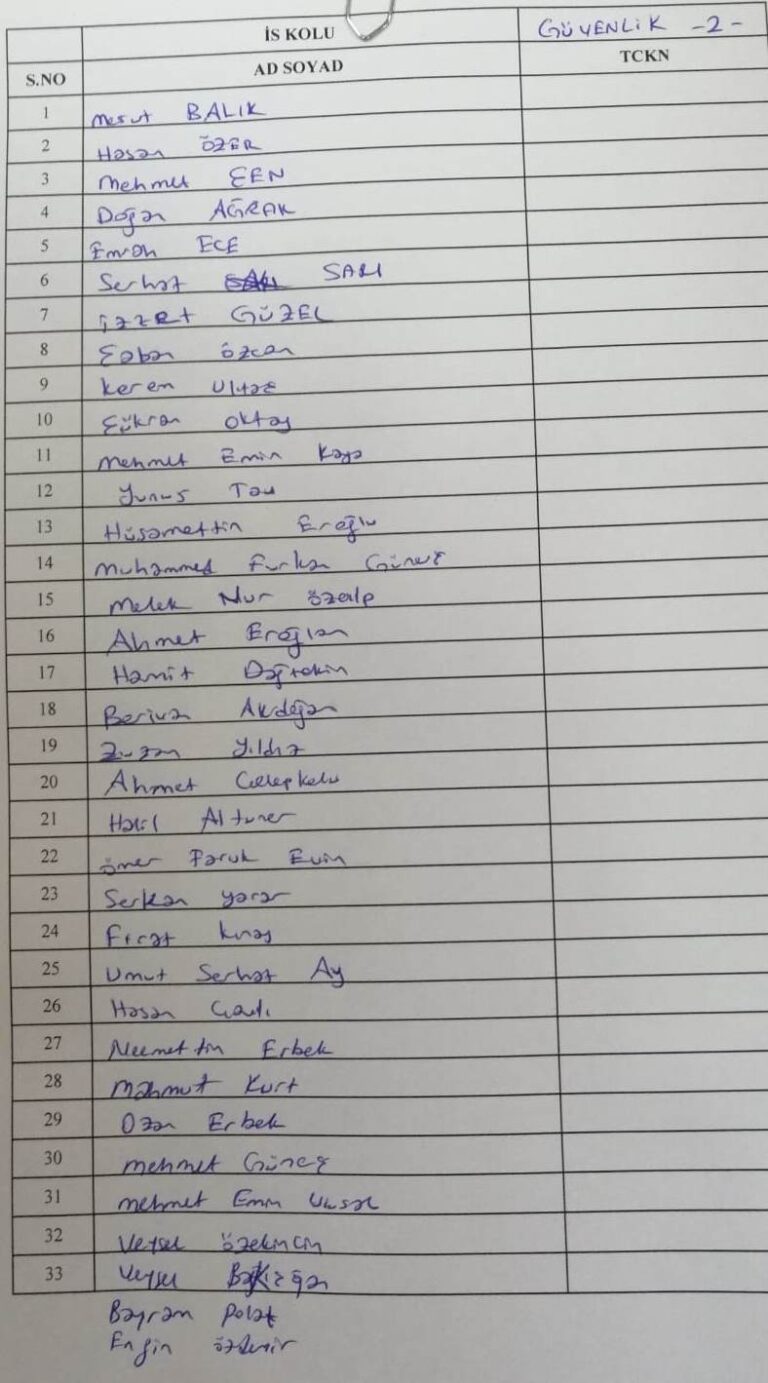 İS KOLU GÜVENLİK -2-
S.NO AD SOYAD TCKN
1 Mesut BALIK
2 Hasan ÖZER
3 Mehmet ŞEN
4 Doğan AĞRAK
5 Emrah ECE
6 Serhat SARI
7 İZZET GÜZEL
8 Şaban Özcan
9 Kerem Ultaş
10 Şükran Oktaş
11 Mehmet Emin Kaya
12 Yunus
13 Hüsamettin Eroğlu
14 Muhammed Furkan Güneş
15 Melek Nur Özalp
16 Ahmet Eroğlan
17 Hamit Dağtekin
18 Berivan Akdoğan
19 Zuzan Yıldız
20 Ahmet Celepkolu
21 Halil Altuner
22 Ömer Faruk Evin
23 Serkan Yarar
24 Fırat Kıraş
25 Umut Serhat Ay
26 Hasan
27 Necmettin Erbek
28 Mahmut Kurt
29 Ozan Erbek
30 Mehmet Güneş
31 Mehmet Emin Uysal
32 Veysel Özekincin
33 Veysel
Bayram Polat
Engin Özdemir